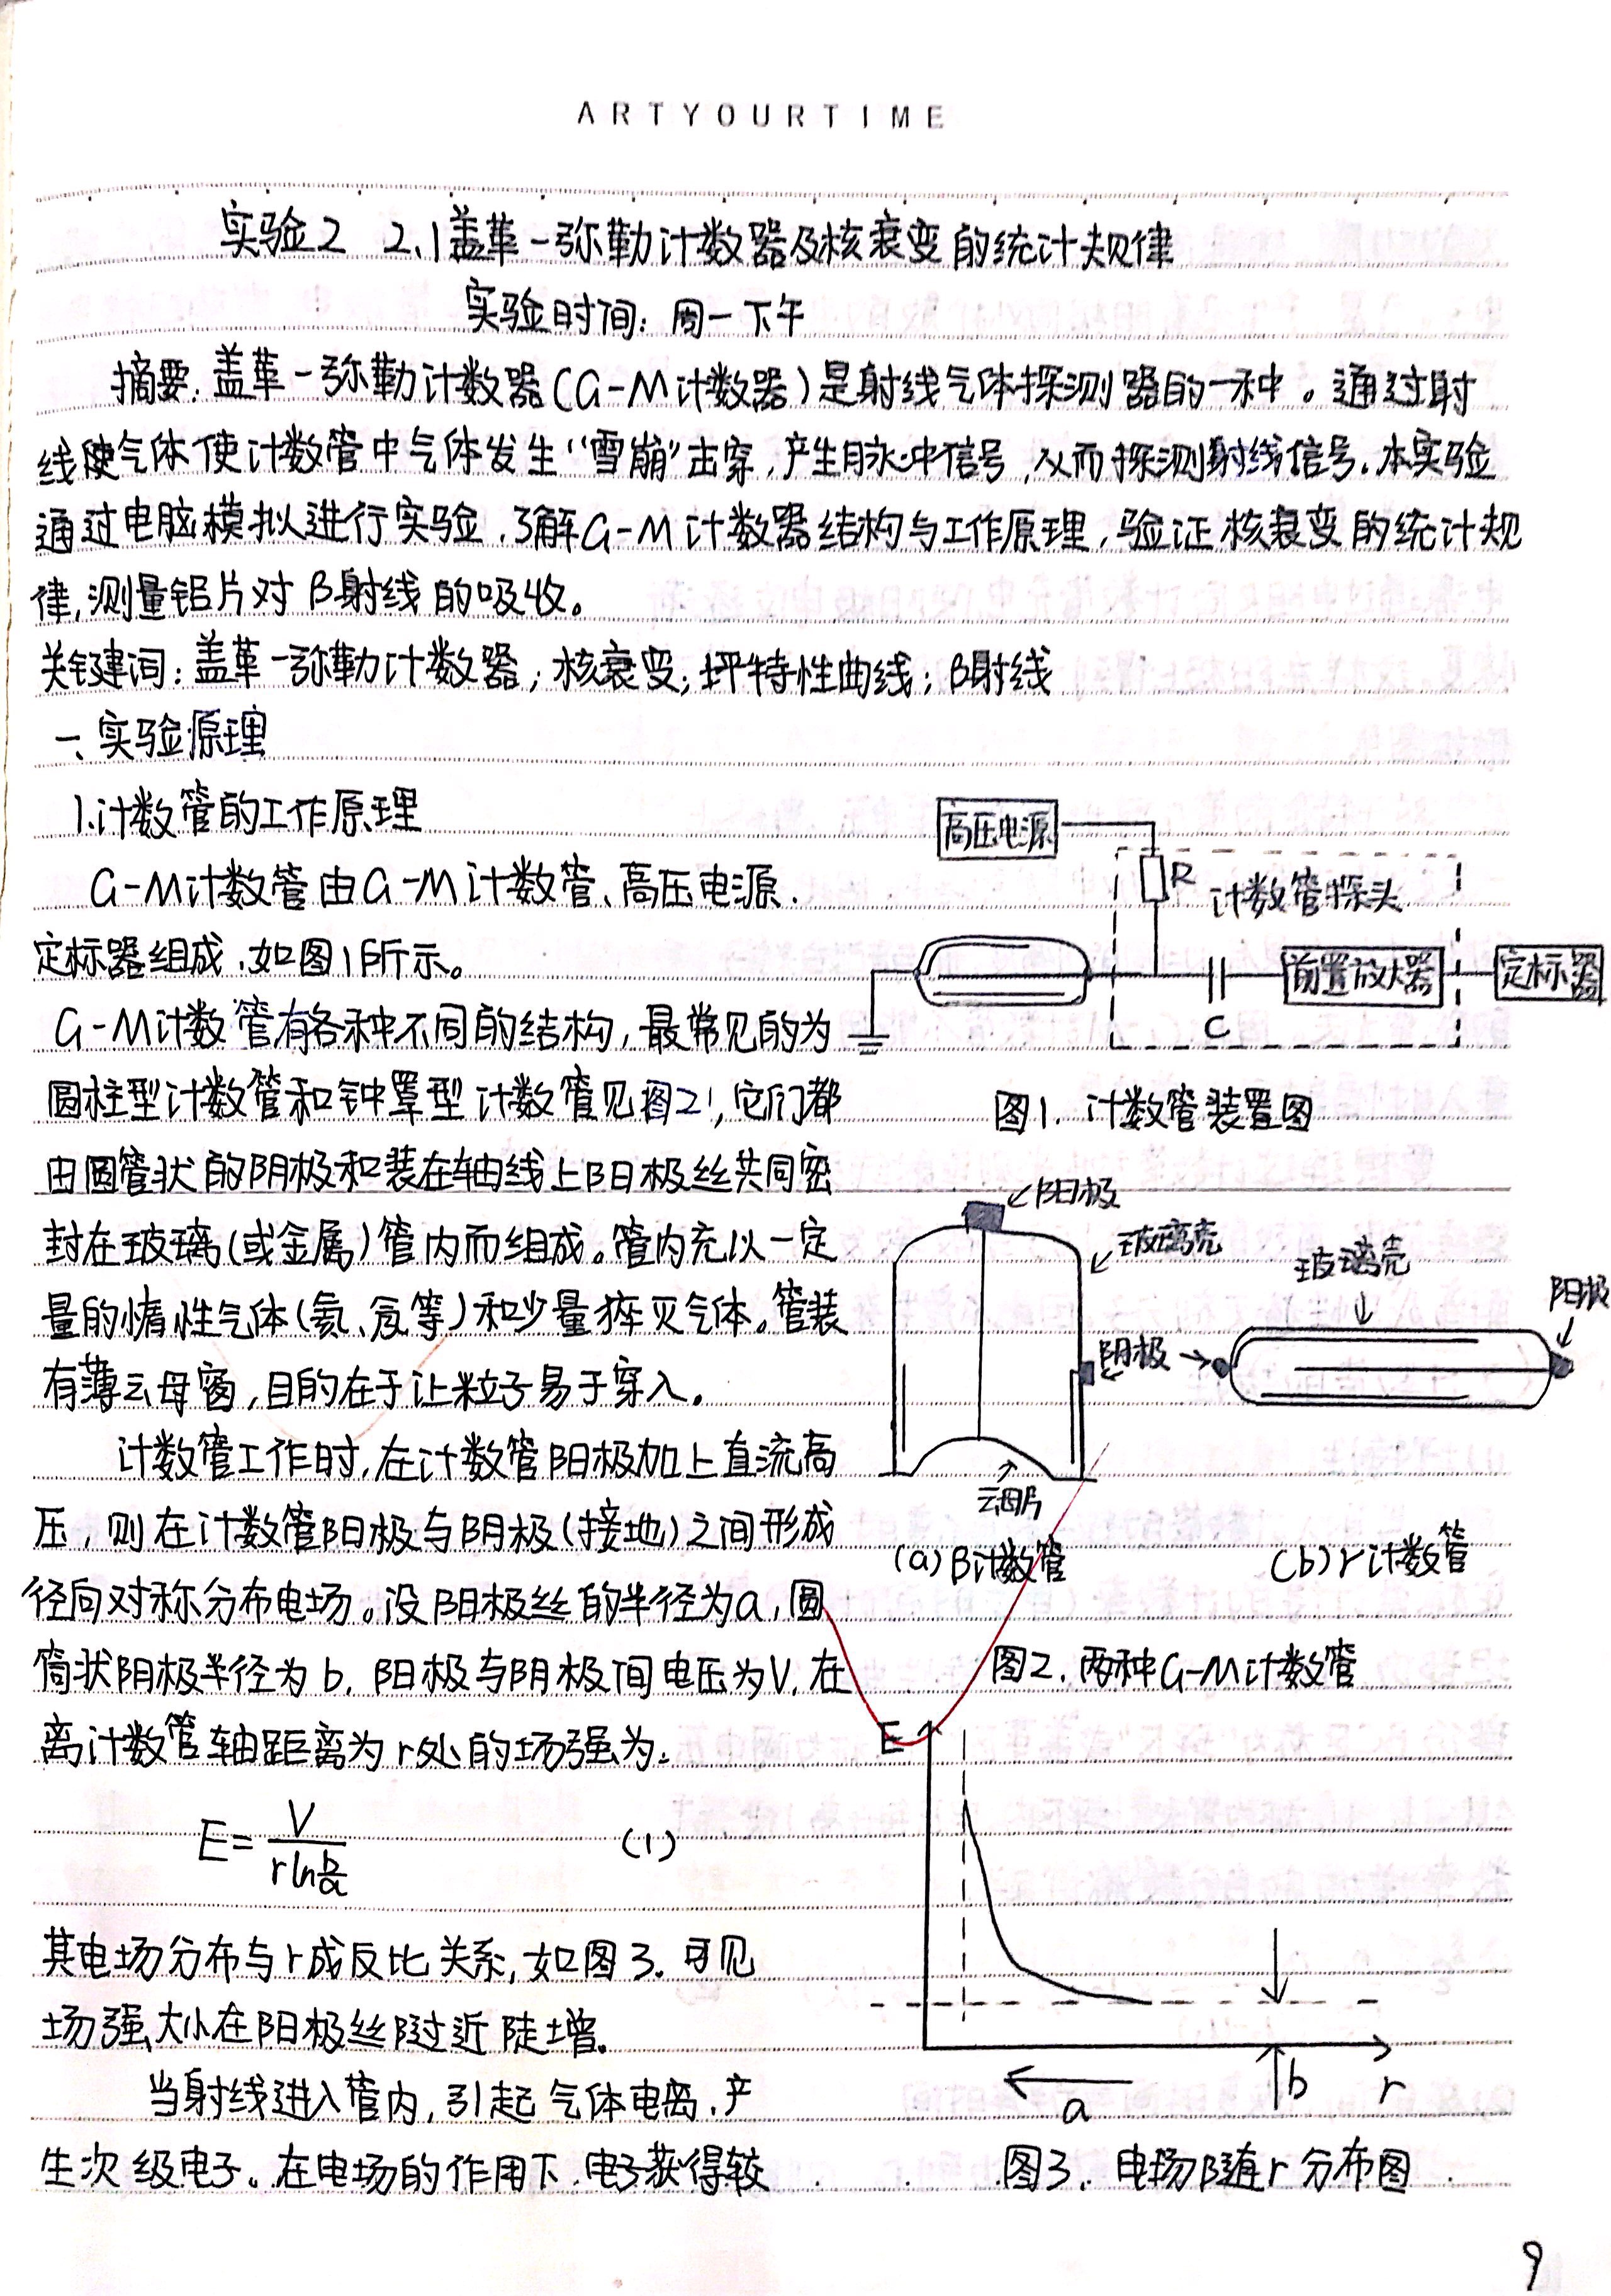 ARTYOURTIME
实验2 2.1盖革-弥勒计数器及核衰变的统计规律
实验时间：周一下午
摘要：盖革-弥勒计数器(G-M计数器)是射线气体探测器的一种。通过射
线使气体使计数管中气体发生“雪崩”击穿，产生脉冲信号，从而探测射线信号。本实验
通过电脑模拟进行实验，了解G-M计数器结构与工作原理，验证核衰变的统计规
律，测量铝片对β射线的吸收。
关键词：盖革-弥勒计数器；核衰变；坪特性曲线；β射线
一、实验原理
1.计数管的工作原理
G-M计数管由G-M计数管、高压电源、
定标器组成，如图1所示。
G-M计数管有各种不同的结构，最常见的为
圆柱型计数管和钟罩型计数管见图2，它们都
由圆管状的阴极和装在轴线上阳极丝共同密
封在玻璃(或金属)管内而组成。管内充以一定
量的惰性气体(氦、氖等)和少量猝灭气体。管装
有薄云母窗，目的在于让粒子易于穿入。
计数管工作时，在计数管阳极加上直流高
压，则在计数管阳极与阴极(接地)之间形成
径向对称分布电场。设阳极丝的半径为a，圆
筒状阴极半径为b，阳极与阴极间电压为V，在
离计数管轴距离为r处的场强为：
E=V/(r ln b/a) (1)
其电场分布与r成反比关系，如图3。可见
场强大小在阳极丝附近陡增。
当射线进入管内，引起气体电离，产
生次级电子。在电场的作用下，电子获得较
高压电源
R
计数管探头
前置放大器
定标器
C
图1. 计数管装置图
阳极
玻璃壳
阴极
云母片
(a)β计数管
玻璃壳
阳极
(b)r计数管
图2. 两种G-M计数管
E
a
b
r
图3. 电场随r分布图
9